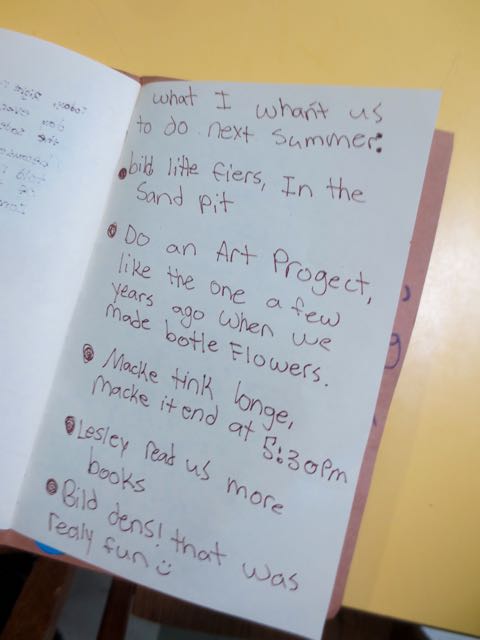 what I whan't us
to do next summer:
bild litle fiers, In the
Sand pit
Do an Art Progect,
like the one a few
years ago when we
made botle Flowers.
Macke tink longe,
macke it end at 5:30pm
Lesley read us more
books
Bild dens! that was
realy fun